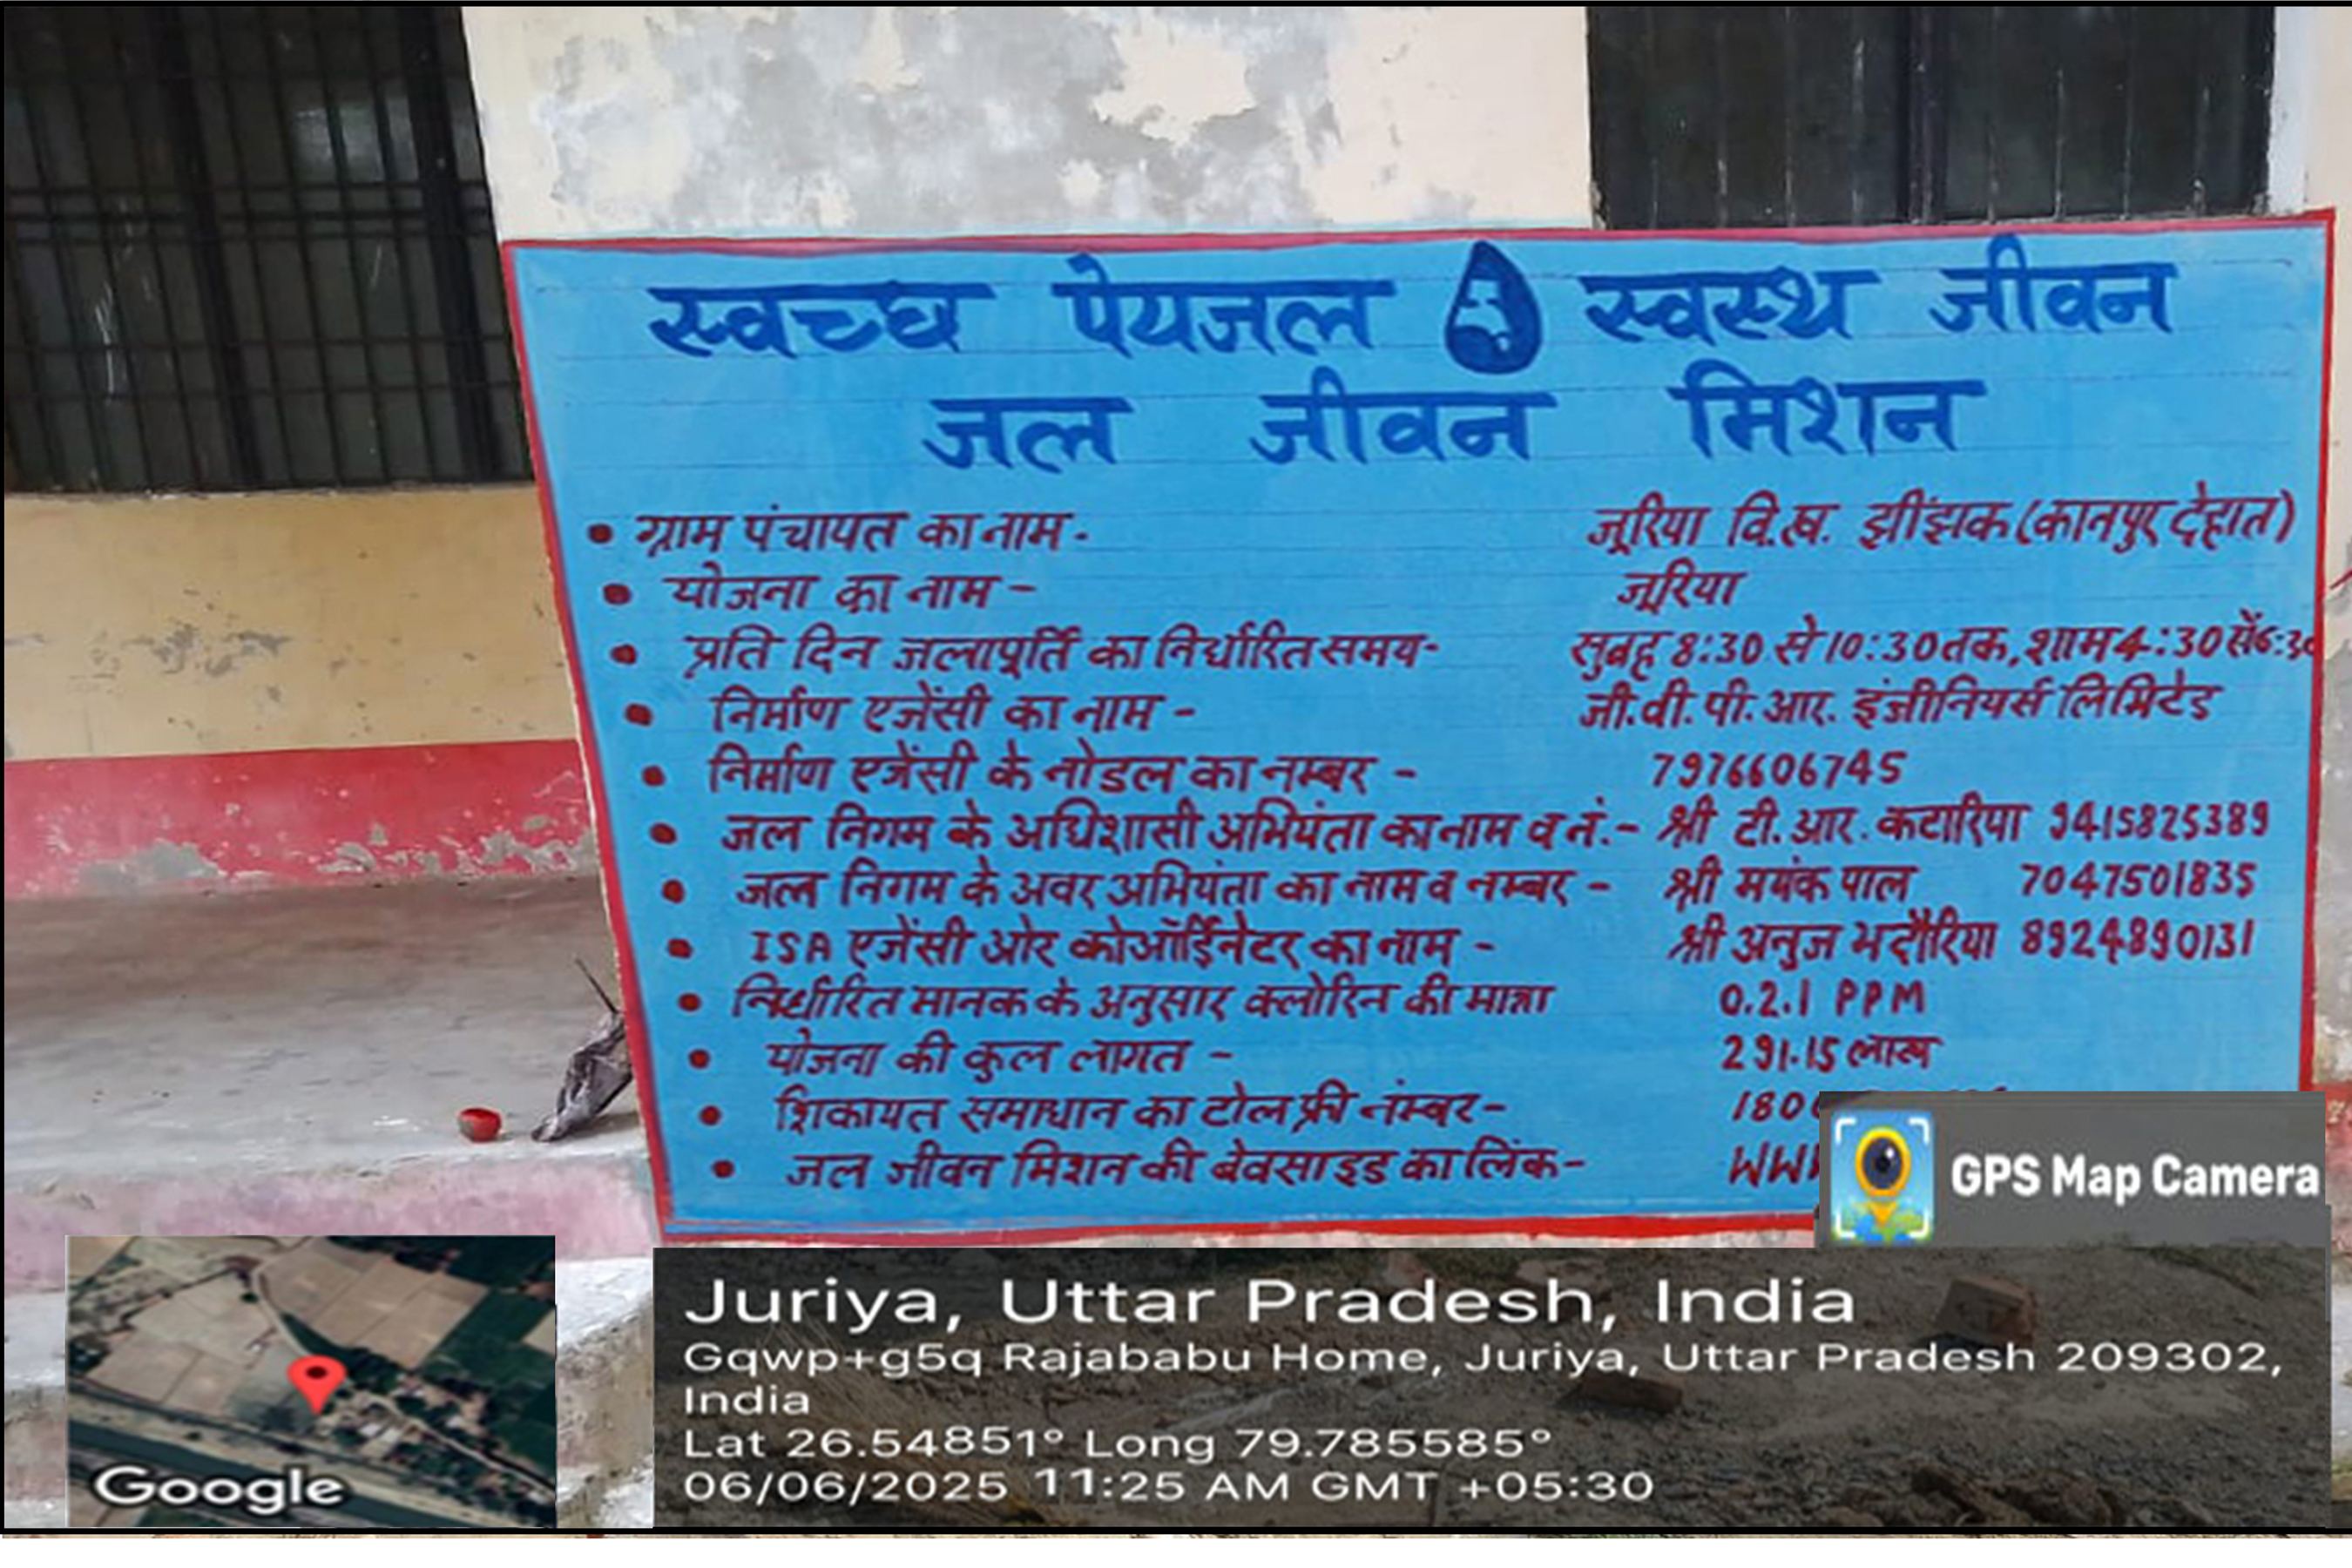 स्वच्छ पेयजल स्वस्थ जीवन
जल जीवन मिशन
• ग्राम पंचायत का नाम - जूरिया वि.ख. झींझक (कानपुर देहात)
• योजना का नाम - जूरिया
• प्रति दिन जलापूर्ति का निर्धारित समय- सुबह 8:30 से 10:30 तक, शाम 4:30 सें 6:30
• निर्माण एजेंसी का नाम - जी.वी.पी.आर. इंजीनियर्स लिमिटेड
• निर्माण एजेंसी के नोडल का नम्बर - 7976606745
• जल निगम के अधिशासी अभियंता का नाम व नं.- श्री टी.आर. कटारिया 9415825389
• जल निगम के अवर अभियंता का नाम व नम्बर - श्री मयंक पाल 7047501835
• ISA एजेंसी ओर कोऑर्डिनेटर का नाम - श्री अनुज भदौरिया 8924890131
• निर्धारित मानक के अनुसार क्लोरिन की मात्रा 0.2.1 PPM
• योजना की कुल लागत - 291.15 लाख
• शिकायत समाधान का टोल फ्री नंम्बर- 180
• जल जीवन मिशन की बेवसाइड का लिंक-
GPS Map Camera
Juriya, Uttar Pradesh, India
Gqwp+g5q Rajababu Home, Juriya, Uttar Pradesh 209302,
India
Lat 26.54851° Long 79.785585°
06/06/2025 11:25 AM GMT +05:30
Google